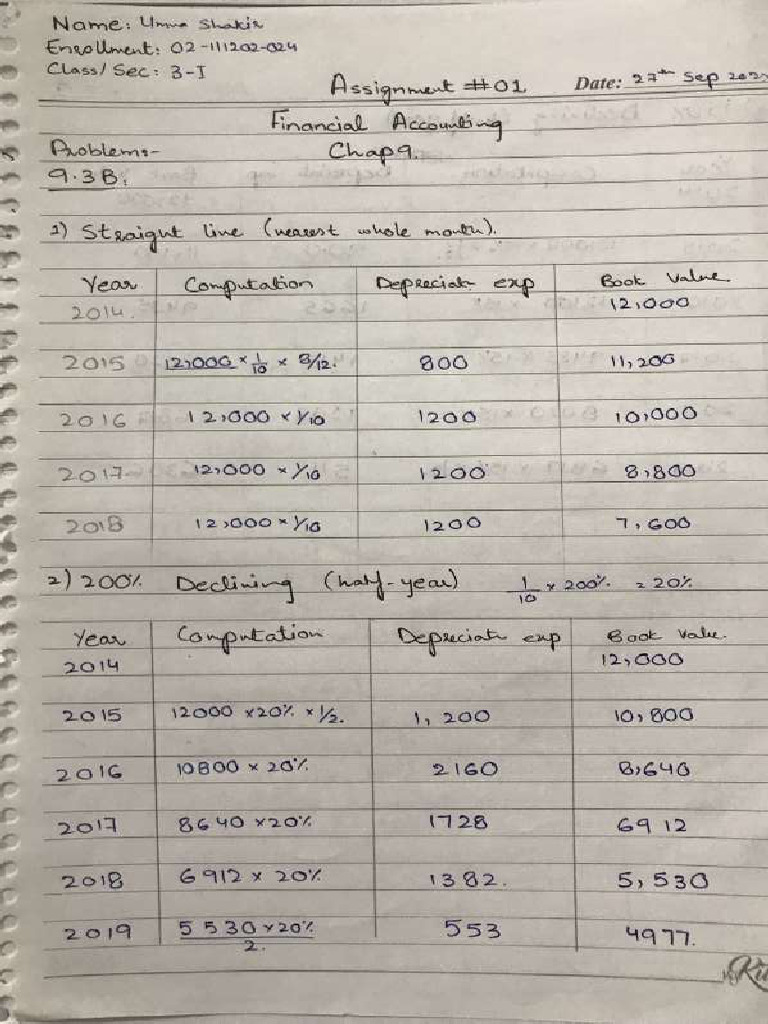 Name: Umna Shakir
Enrollment: 02-111202-024
Class/Sec: 3-I
Assignment #01 Date: 27th Sep
Financial Accounting
Problems:- Chap 9.
9.3B:
1) Straight line (nearest whole month).
Year Computation Depreciat exp Book Value
2014. 12,000
2015 12,000 × 1/10 × 8/12. 800 11,200
2016 12,000 × 1/10 1200 10,000
2017 12,000 × 1/10 1200 8,800
2018 12,000 × 1/10 1200 7,600
2) 200% Declining (half-year) 1/10 × 200% = 20%
Year Computation Depreciat exp Book Value.
2014 12,000
2015 12000 × 20% × 1/2. 1,200 10,800
2016 10800 × 20% 2160 8,640
2017 8640 × 20% 1728 6912
2018 6912 × 20% 1382. 5,530
2019 5530 × 20% / 2. 553 4977.